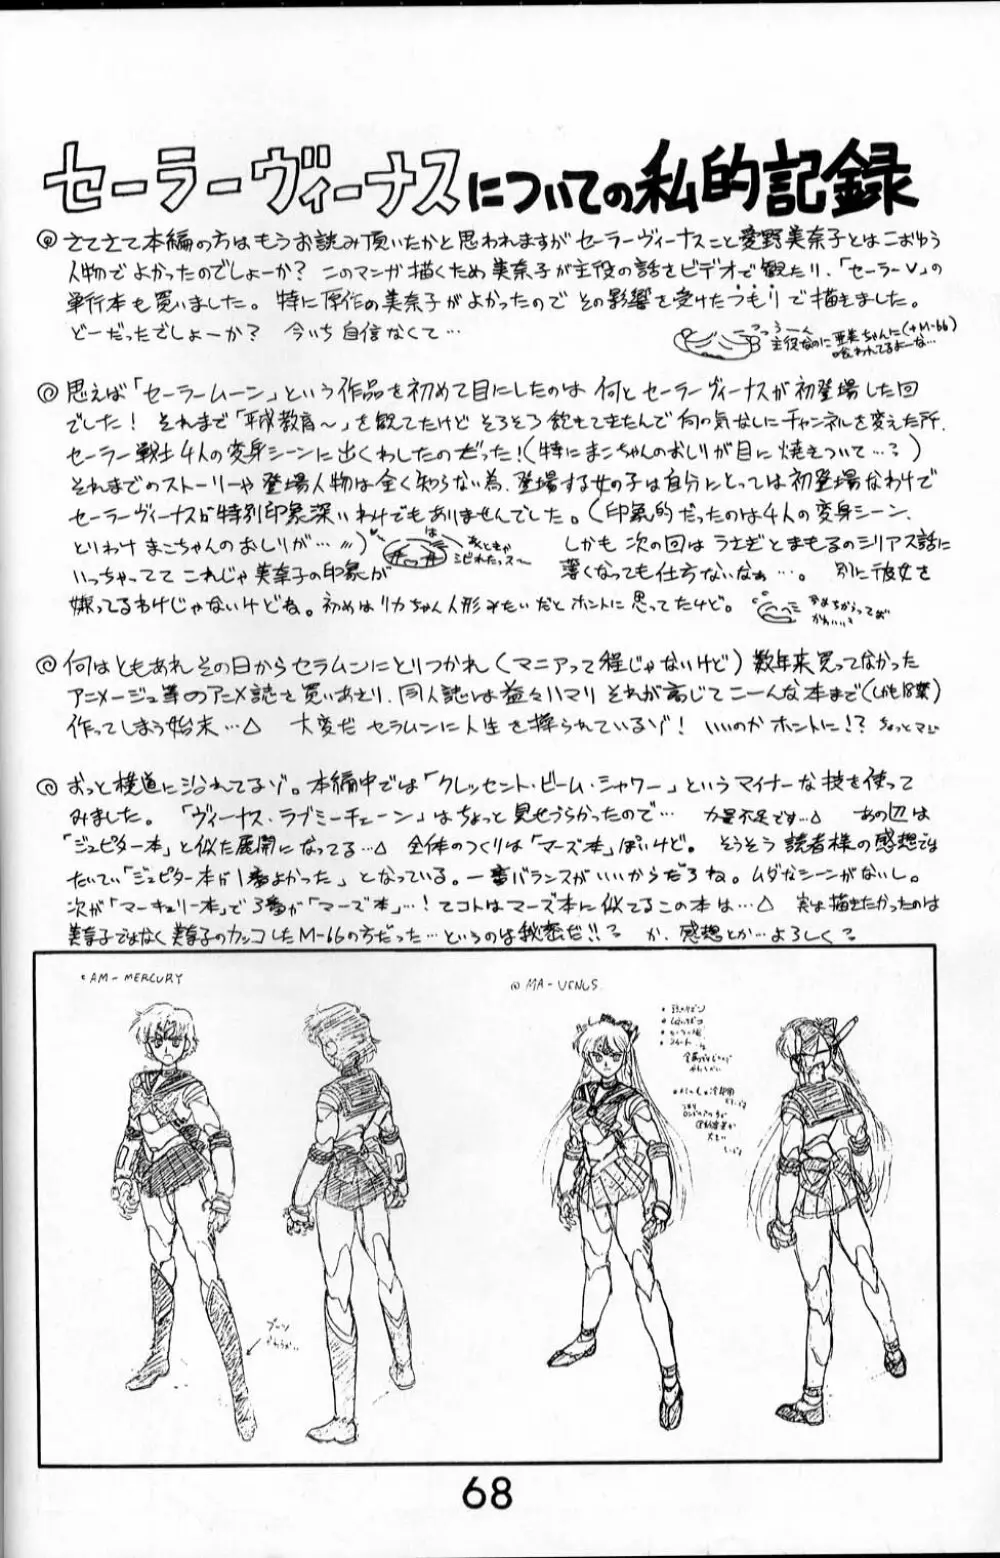 セーラーヴィーナスについての私的記録
さてさて本編の方はもうお読み頂いたかと思われますがセーラーヴィーナスこと愛野美奈子とはこおゆう
人物でよかったのでしょーか？ このマンガ描くため美奈子が主役の話をビデオで観たり、「セーラーV」の
単行本も買いました。特に原作の美奈子がよかったのでその影響を受けたつもりで描きました。
どーだったでしょーか？ 今いち自信なくて…
主役なのに亜美ちゃんに(+M-66)
喰われてるよーな…
思えば「セーラームーン」という作品を初めて目にしたのは何とセーラーヴィーナスが初登場した回
でした！ それまで「平成教育〜」を観てたけどそろそろ飽きてきたんで何の気なしにチャンネルを変えた所、
セーラー戦士4人の変身シーンに出くわしたのだった！(特にまこちゃんのおしりが目に焼きついて…？)
それまでのストーリーや登場人物は全く知らない為、登場する女の子は自分にとっては初登場なわけで
セーラーヴィーナスが特別印象深いわけでもありませんでした。(印象的だったのは4人の変身シーン、
とりわけまこちゃんのおしりが…〃) しかも次の回はうさぎとまもるのシリアス話に
いっちゃってて これじゃ美奈子の印象が 薄くなっても仕方ないなぁ…。 別に彼女を
嫌ってるわけじゃないけどね。初めはリカちゃん人形みたいだとホントに思ってたけど。
何はともあれその日からセラムンにとりつかれ(マニアって程じゃないけど)数年来買ってなかった
アニメージュ等のアニメ誌を買いあさり、同人誌は益々ハマりそれが高じてこーんな本まで(しかも18禁)
作ってしまう始末…△ 大変だセラムンに人生を操られているゾ！ いいのかホントに!? ちょっとマジ
おっと横道に沿れてるゾ。本編中では「クレッセント・ビーム・シャワー」というマイナーな技を使って
みました。「ヴィーナス・ラブミーチェーン」はちょっと見せづらかったので… 力量不足です…△ あの辺は
「ジュピター本」と似た展開になってる…△ 全体のつくりは「マーズ本」ぽいけど。そうそう読者様の感想では
だいたい「ジュピター本が1番よかった」となっている。一番バランスがいいからだろね。ムダなシーンがないし。
次が「マーキュリー本」で3番が「マーズ本」…！てコトはマーズ本に似てるこの本は…△ 実は描きたかったのは
美奈子ではなく美奈子のカッコしたM-66の方だった…というのは秘密だ!!？ か、感想とか…よろしく？
AM-MERCURY
MA-VENUS
ブーツ
68